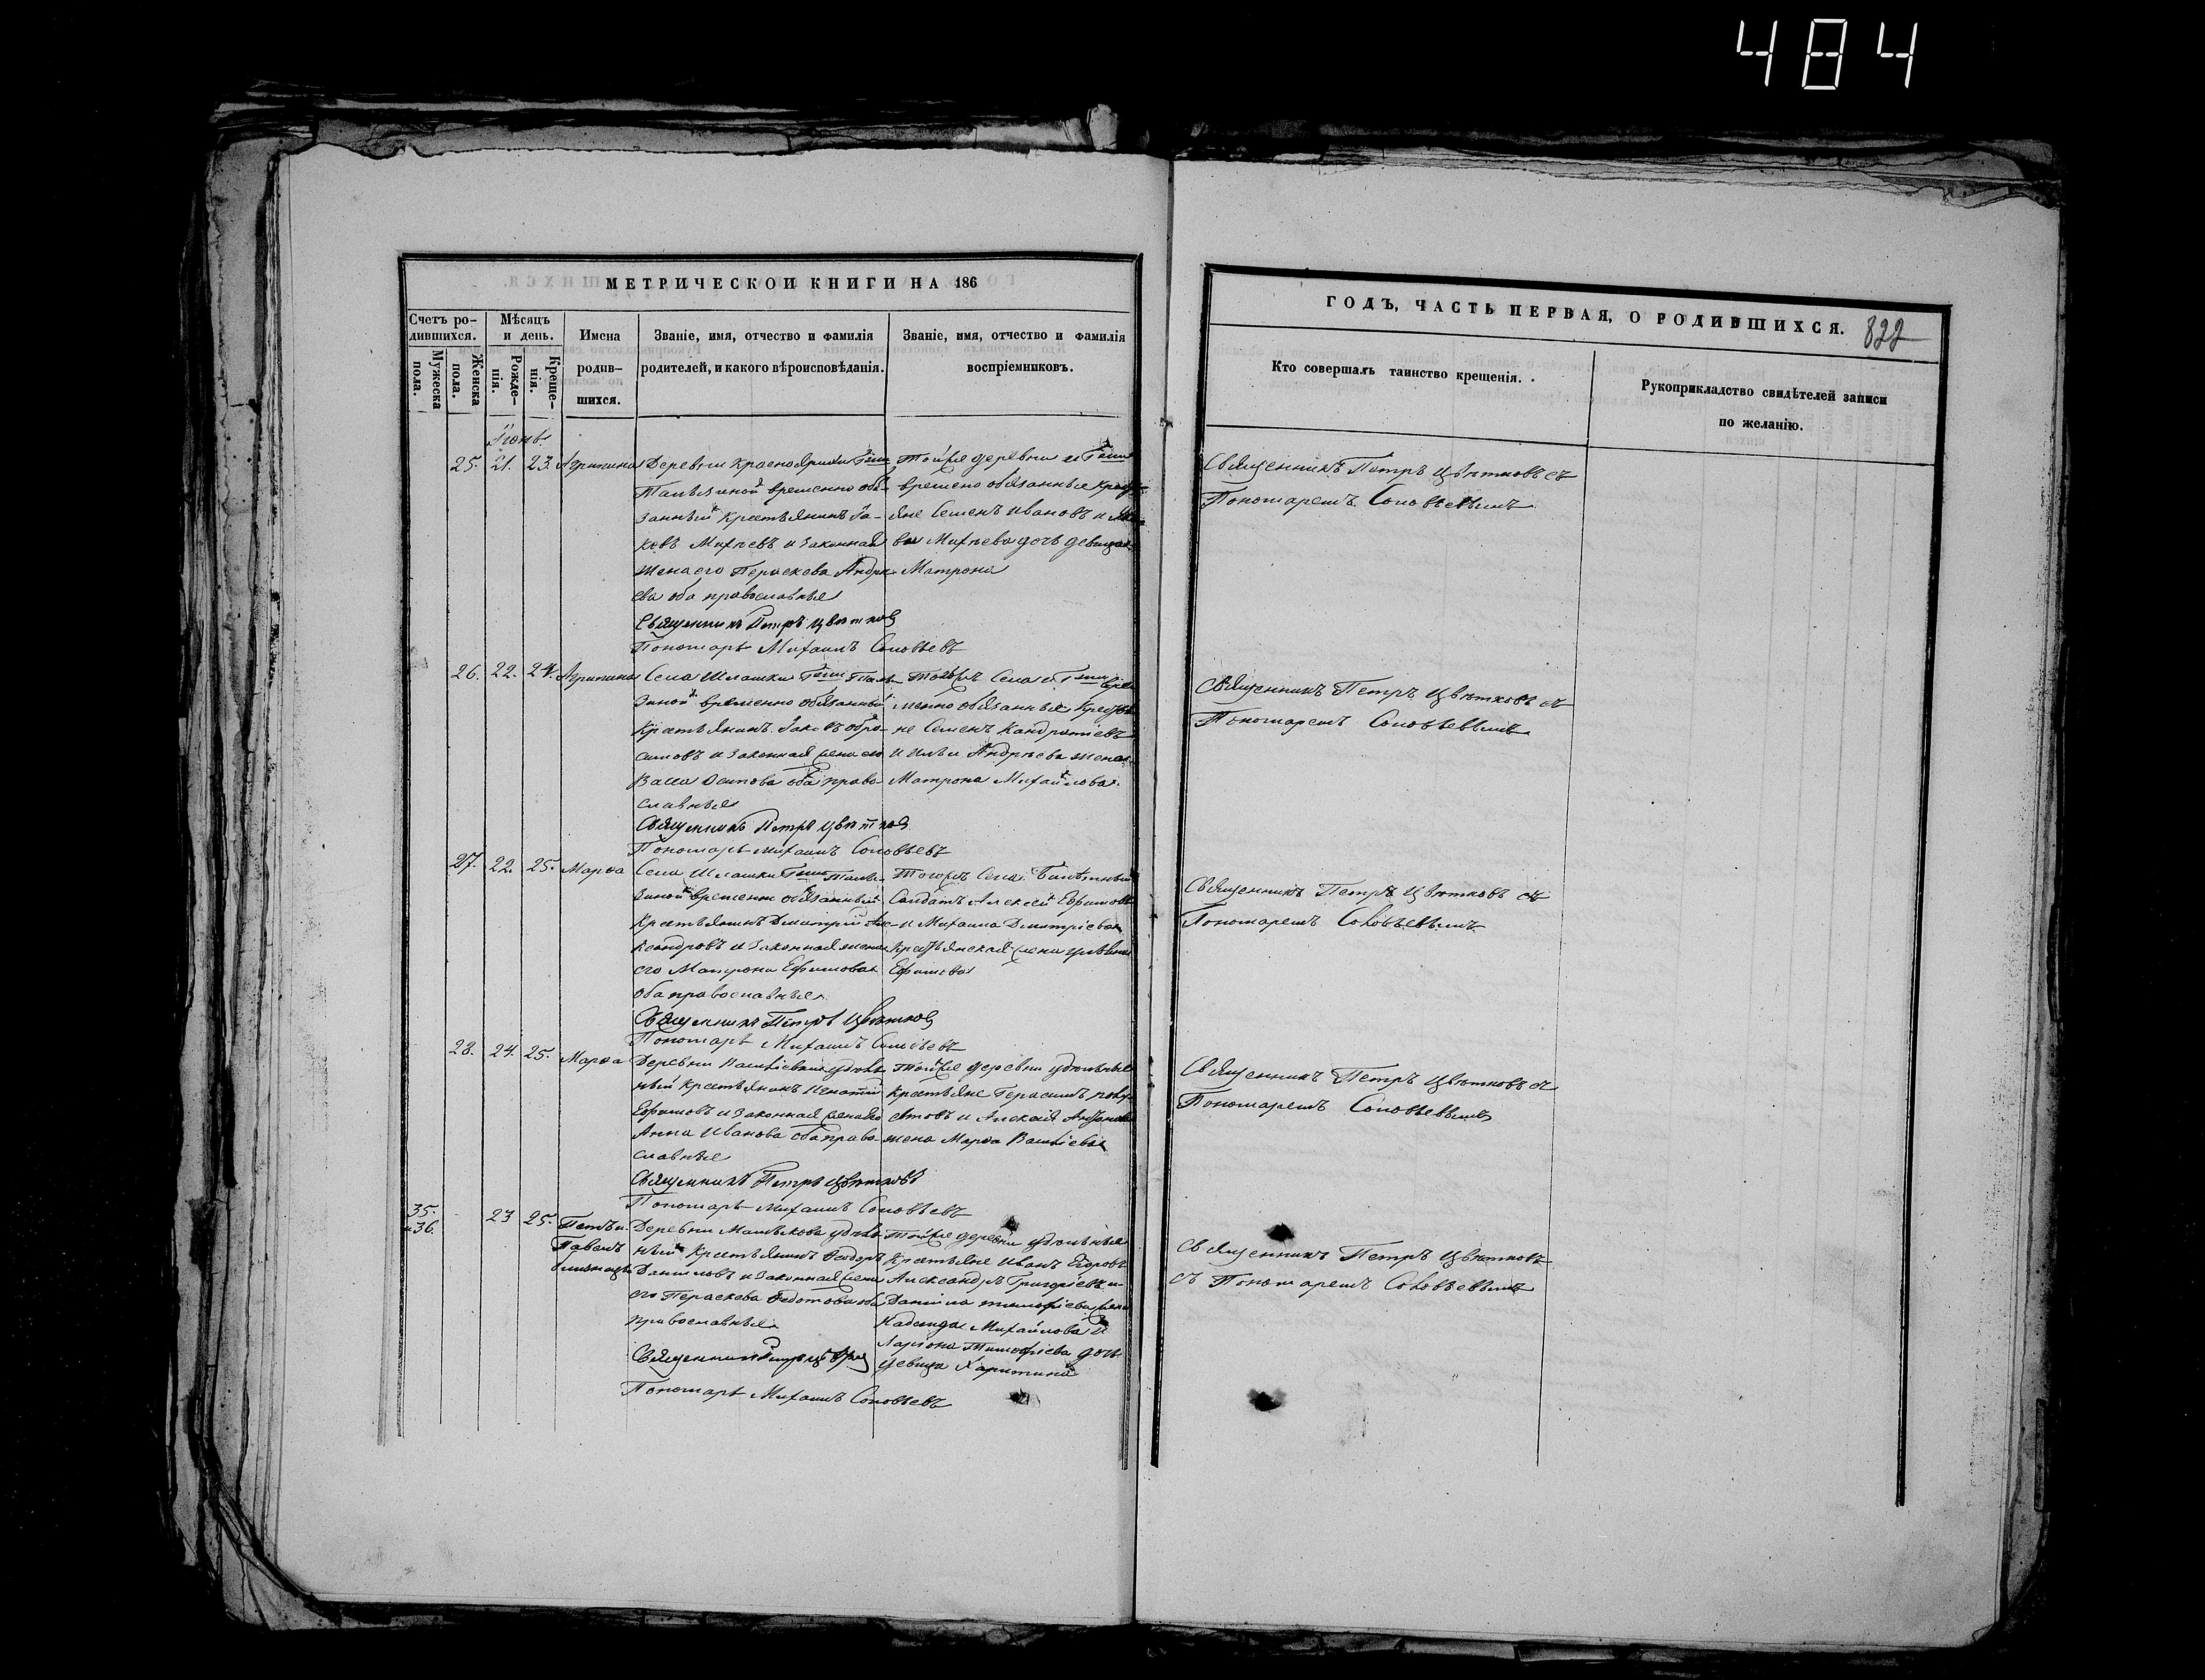 484
МЕТРИЧЕСКОЙ КНИГИ НА 186
Счетъ ро-
дившихся.
Мужеска
пола.
Женска
пола.
Мѣсяцъ
и день.
Рожде-
нія.
Креще-
нія.
Имена
родив-
шихся.
Званіе, имя, отчество и фамилія
родителей, и какого вѣроисповѣданія.
Званіе, имя, отчество и фамилія
воспріемниковъ.
Іюнь
25. 21. 23. Агрипина
Деревни Красноярихи Гжи
временно обя-
занный крестьянинъ Іа-
ковъ Михѣевъ и законная
жена его Параскева Андре
ева оба православные
Священникъ Петръ Цвѣтков
Пономарь Михаилъ Соловьевъ
Той же деревни и Гжи
времено обязанные крес
яне Семенъ Ивановъ и
Михѣева дочь девица
Матрона
26. 22. 24. Агрипина
Села Шлашки Гжи
зиной временно обязанный
Крестьянинъ
симовъ и законная жена его
Васса Осипова оба право-
славные
Священникъ Петръ Цвѣтков
Пономарь Михаилъ Соловьевъ
Тогожъ Села и Гжи вре
менно обязанные Крестья
не Семенъ Кандратіевъ
и Ильи Андрѣева жена
Матрона Михайлова
27. 22. 25. Марѳа
Села Шлашки Гжи
зиной временн обязанный
Крестьянинъ Дмитрій Але
ксандровъ и законная жена
его Матрона Ефимова
оба православные
Священникъ Петръ Цвѣтков
Пономарь Михаилъ Соловьевъ
Тогожъ Села Билѣтный
Солдатъ Алексѣй Ефимовъ
и Михаила Дмитріева
Крестьянская жена
Ефимова
28. 24. 25. Марѳа
Деревни удѣль
ный крестьянинъ Игнатій
Ефимовъ и законная жена его
Анна Иванова оба право-
славные
Священникъ Петръ Цвѣтковъ
Пономарь Михаилъ Соловьевъ
Той же деревни удѣльные
крестьяне Герасимъ
и
жена Марѳа
35.
и 36. 23 25. Петръ и
Павелъ
близнецы
Деревни Малькова удѣль
ный Крестьянинъ Ѳеодоръ
Даниловъ и законная жена
его Параскева Ѳедотова оба
православные
Пономарь Михаилъ Соловьевъ
Той же деревни удѣльные
Крестьяне Иванъ Егоровъ
Александръ Григорьевъ и
Данила Тимофіева жена
Надежда Михайлова И
Ларіона Тимофіева дочь
девица Харитина
ГОДЪ, ЧАСТЬ ПЕРВАЯ, О РОДИВШИХСЯ.
822
Кто совершалъ таинство крещенія.
Рукоприкладство свидѣтелей записи
по желанію.
Священникъ Петръ Цвѣтковъ съ
Пономаремъ Соловьевымъ
Священникъ Петръ Цвѣтковъ съ
Пономаремъ Соловьевымъ
Священникъ Петръ Цвѣтковъ съ
Пономаремъ Соловьевымъ
Священникъ Петръ Цвѣтковъ съ
Пономаремъ Соловьевымъ
Священникъ Петръ Цвѣтковъ
съ Пономаремъ Соловьевымъ